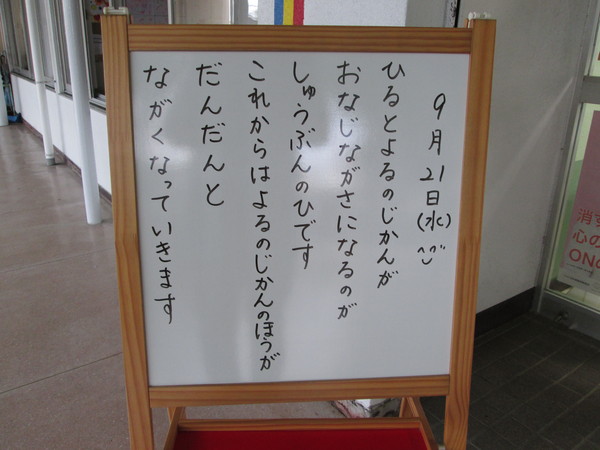 9月21日(水)^^
ひるとよるのじかんが
おなじながさになるのが
しゅうぶんのひです
これからはよるのじかんのほうが
だんだんと
ながくなっていきます
消す
心の
ON